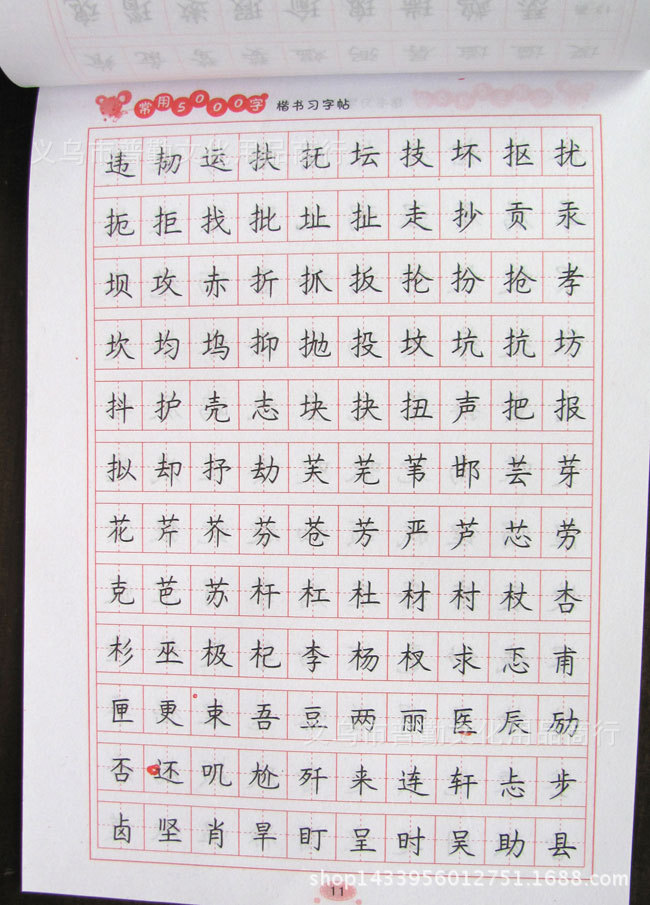 常用5000字 楷书习字帖
违韧运扶抚坛技坏抠扰
扼拒找批址扯走抄贡汞
坝攻赤折抓扳抡扮抢孝
坎均坞抑抛投坟坑抗坊
抖护壳志块抉扭声把报
拟却抒劫芙芜苇邯芸芽
花芹芥芬苍芳严芦芯劳
克芭苏杆杠杜材村杖杏
杉巫极杞李杨杈求忑甫
匣更束吾豆两丽医辰励
否还叽尬歼来连轩忐步
卤坚肖旱盯呈时吴助县
11
义乌市普勤文化用品商行
义乌市普勤文化用品商行
shop1433956012751.1688.com